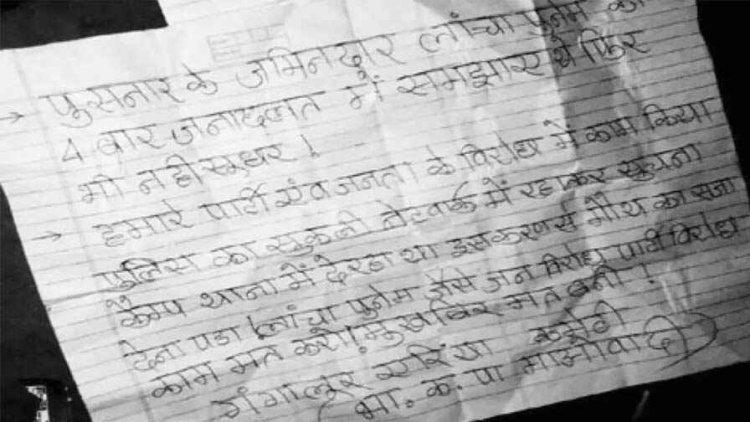 → पुसनार के जमिनदार लांचा पुनेम को
4 बार जनादलत में समझाए थे फिर
भी नही सुधर !
→ हमारे पार्टी एंव जनता के विरोध में काम किया
पुलिस का नेटवर्क में रहकर सुचना
कैम्प थाना में देरहा था इसकरण से मौथ का सजा
देना पडा ! लांचा पुनेम जैसे जन विरोध पार्टी विरोध
काम मत करो ! मुखबिर मत बनो !
गंगालुर एरिया कमेटी
भा. क. पा माओवादी)